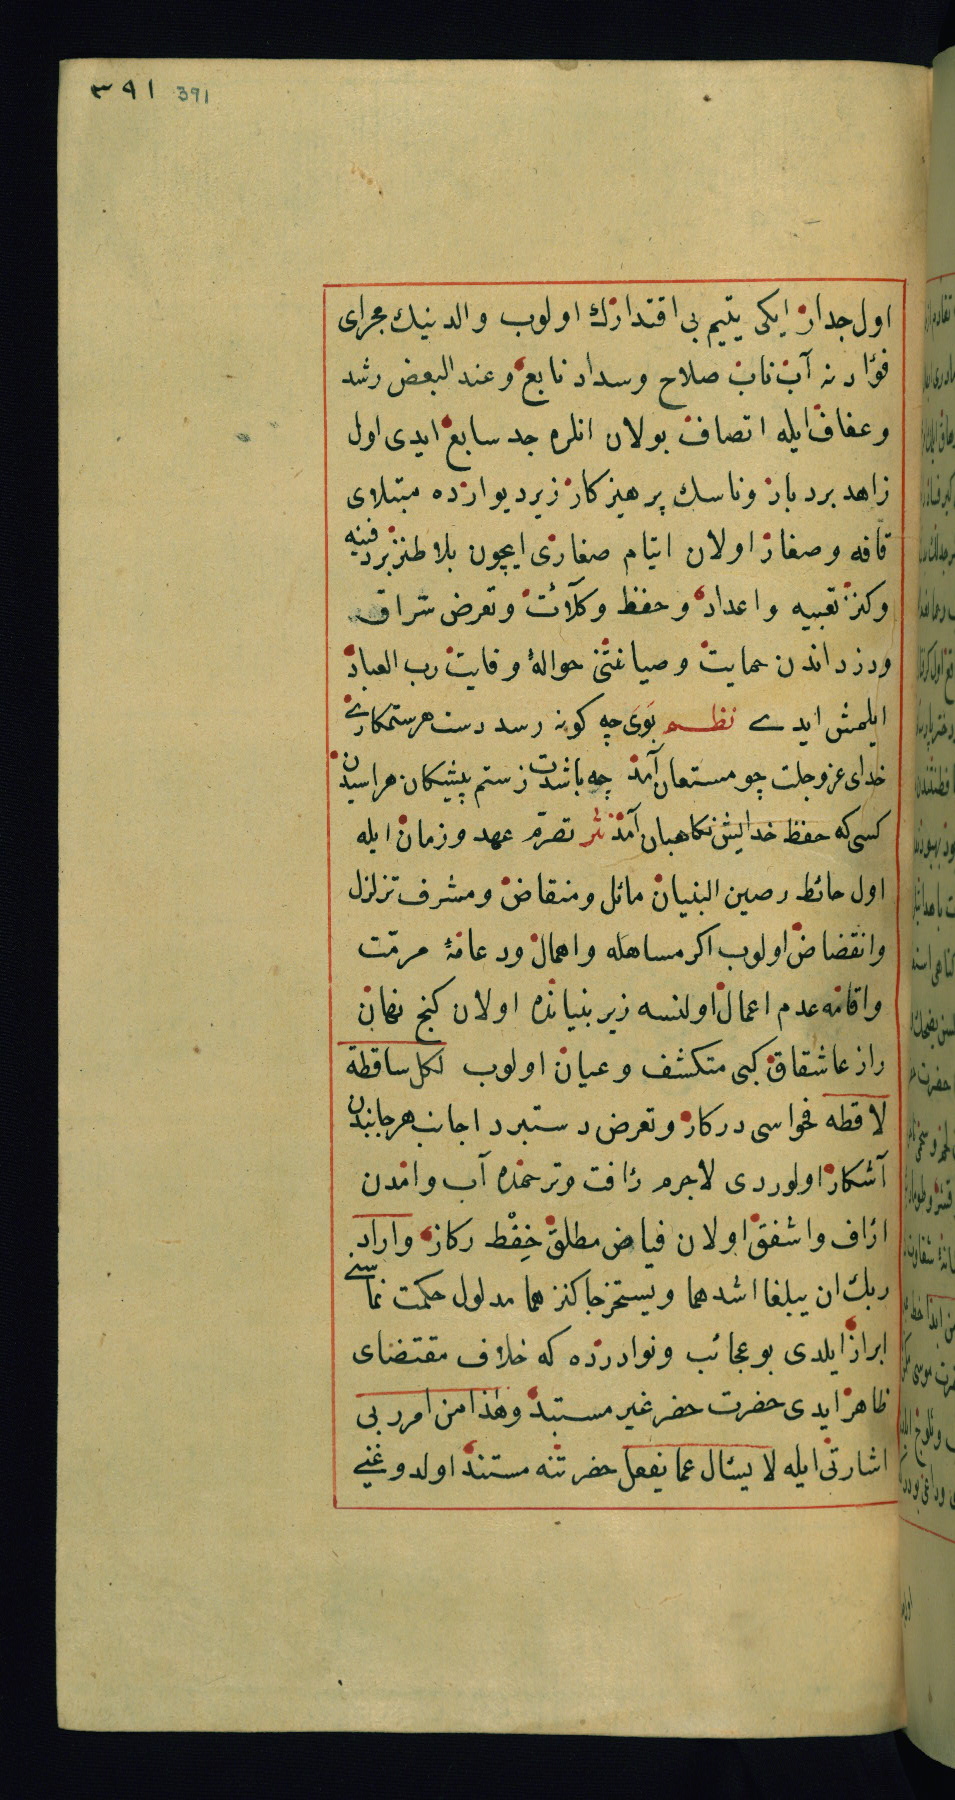 ٣٩١ 391
اول جدار ایکی یتیم بی اقتدارك اولوب والدینیك مجرای
فؤادنه آب ناب صلاح وسداد نابع وعند البعض رشد
وعفاف ایله اتصاف بولان انلره جد سابع ایدی اول
زاهد بردبار وناسك پرهیزکار زیر دیوارده مبتلای
فاقه وصغار اولان ایتام صغاری ایچون بلا طنز بر دفینه
وکنز تعبیه واعداد وحفظ وکلائت وتعرض سراق
ودزداندن حمایت وصیانتنی حوالهٔ وقایت رب العباد
ایلمش ایدی نظم بوی چه کونه رسد دست هر ستمکاری
خدای عز وجلت چو مستعان آمد چه باشدت ز ستم پیشکان هراسیدن
کسی که حفظ خدایش نکاهبان آمد نثر تصرم عهد وزمان ایله
اول حائط رصین البنیان مائل ومنقاض ومشرف تزلزل
وانقضاض اولوب اکر مساهله واهمال ودعامهٔ مرمت
واقامه عدم اعمال اولنسه زیر بنیانده اولان کنج نهان
راز عاشقان کبی متکشف وعیان اولوب لکل ساقطة
لاقطه فحواسی درکار وتعرض دستبرد اجانب هر جانبدن
آشکار اولوردی لاجرم رأفت وترحمده آب وامدن
ارأف واشفق اولان فیاض مطلق حفظ رکاز واراد
ربك ان یبلغا اشدهما ویستخرجا کنزهما مدلول حکمت نماسنی
ابراز ایلدی بو عجائب ونوادرده که خلاف مقتضای
ظاهر ایدی حضرت خضر غیر مستبد وهذا من امر ربی
اشارتی ایله لا یسئال عما یفعل حضرتنه مستند اولدوغنی